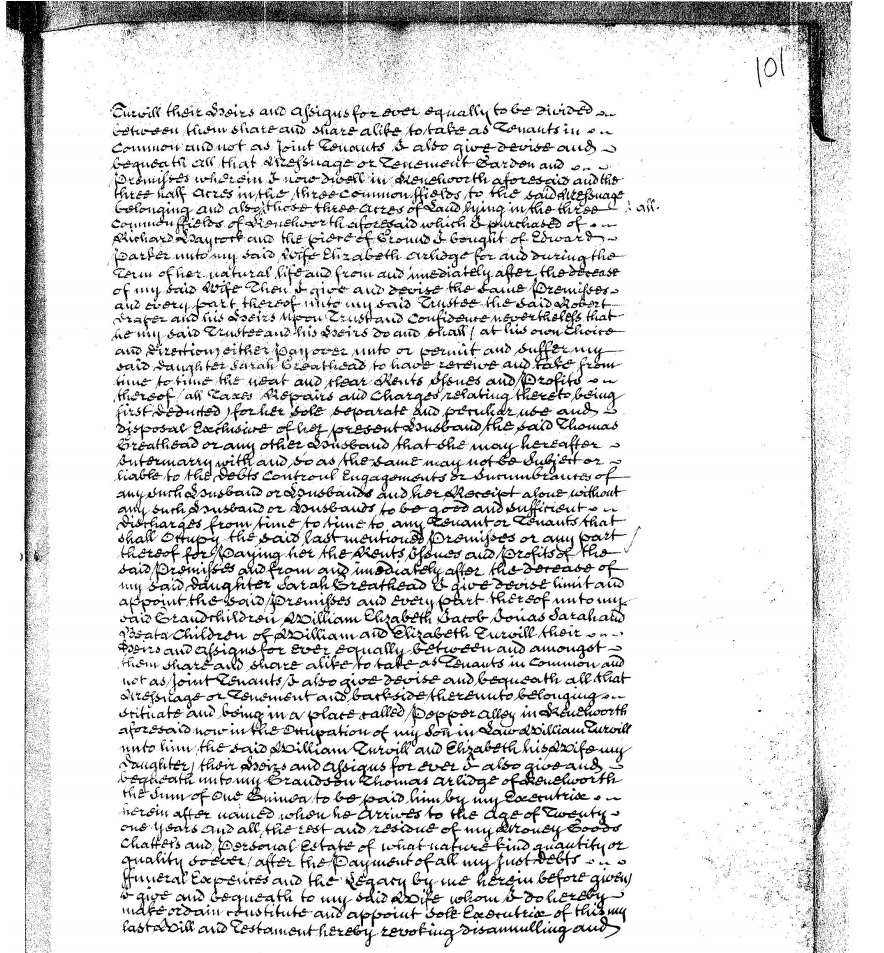 101
Turvill their Heirs and Assigns for ever equally to be divided
between them share and share alike to take as Tenants in
Common and not as Joint Tenants I also give devise and
bequeath all that Messuage or Tenement Garden and
Premisses wherein I now dwell in Kenelworth aforesaid and the
three half Acres in the three Common ffields to the said Messuage
belonging and also those three Acres of Land lying in the three
all
Common ffields of Kenelworth aforesaid which I purchased of
Richard Haycock and the piece of Ground I bought of Edward
Parker unto my said Wife Elizabeth Arlidge for and during the
Term of her natural life and from and imediately after the decease
of my said Wife Then I give and devise the same Premisses
and every part thereof unto my said Trustee the said Robert
and his Heirs upon Trust and Confidence nevertheless that
he my said Trustee and his Heirs do and shall (at his own Choice
and direction) either Pay over unto or permit and suffer my
said daughter Sarah Greathead to have receive and take from
time to time the neat and clear Rents Issues and Profits
thereof (all Taxes Repairs and Charges relating thereto being
first deducted) for her sole separate and peculiar use and
disposal Exclusive of her present Husband the said Thomas
Greathead or any other Husband that she may hereafter
Intermarry with and so as the same may not be Subject or
liable to the debts Controul Engagements or Incumbrances of
any such Husband or Husbands and her Receipt alone without
any such Husband or Husbands to be good and sufficient
discharges from time to time to any Tenant or Tenants that
shall Occupy the said last mentioned Premisses or any part
thereof for Paying her the Rents Issues and Profits of the
said Premisses and from and imediately after the decease of
my said daughter Sarah Greathead I give devise limit and
appoint the said Premisses and every part thereof unto my
said Grandchildren William Elizabeth Jacob Jonas Sarah and
Beata Children of William and Elizabeth Turvill their
Heirs and Assigns for ever equally between and amongst
them share and share alike to take as Tenants in Common and
not as Joint Tenants I also give devise and bequeath all that
Messuage or Tenement and backside thereunto belonging
scituate and being in a place called Pepper Alley in Kenelworth
aforesaid now in the Occupation of my Son in Law William Turvill
unto him the said William Turvill and Elizabeth his Wife (my
daughter) their Heirs and Assigns for ever I also give and
bequeath unto my Grandson Thomas Arlidge of Kenelworth
the Sum of One Guinea to be paid him by my Executrix
herein after named when he Arrives to the Age of Twenty
one years and all the rest and residue of my Money Goods
Chattels and Personal Estate of what nature kind quantity or
quality soever (after the Payment of all my just debts
ffuneral Expences and the Legacy by me herein before given)
I give and bequeath to my said Wife whom I do hereby
make ordain constitute and appoint sole Executrix of this my
last Will and Testament hereby revoking disannulling and